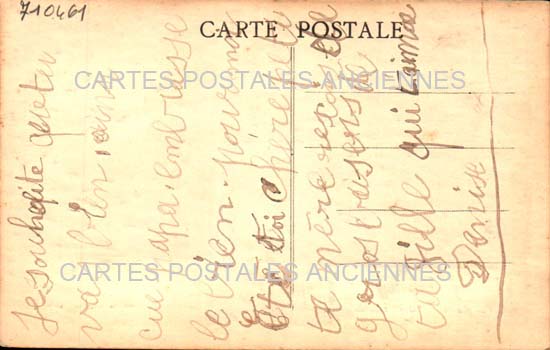 710461
CARTE POSTALE
CARTES POSTALES ANCIENNES
CARTES POSTALES ANCIENNES
Je souhaite que tu
va bien ainsi
que papa embrasse
le bien pour moi
Et toi chère
ta mère
gros baisers de
ta fille qui t'aime
Denise